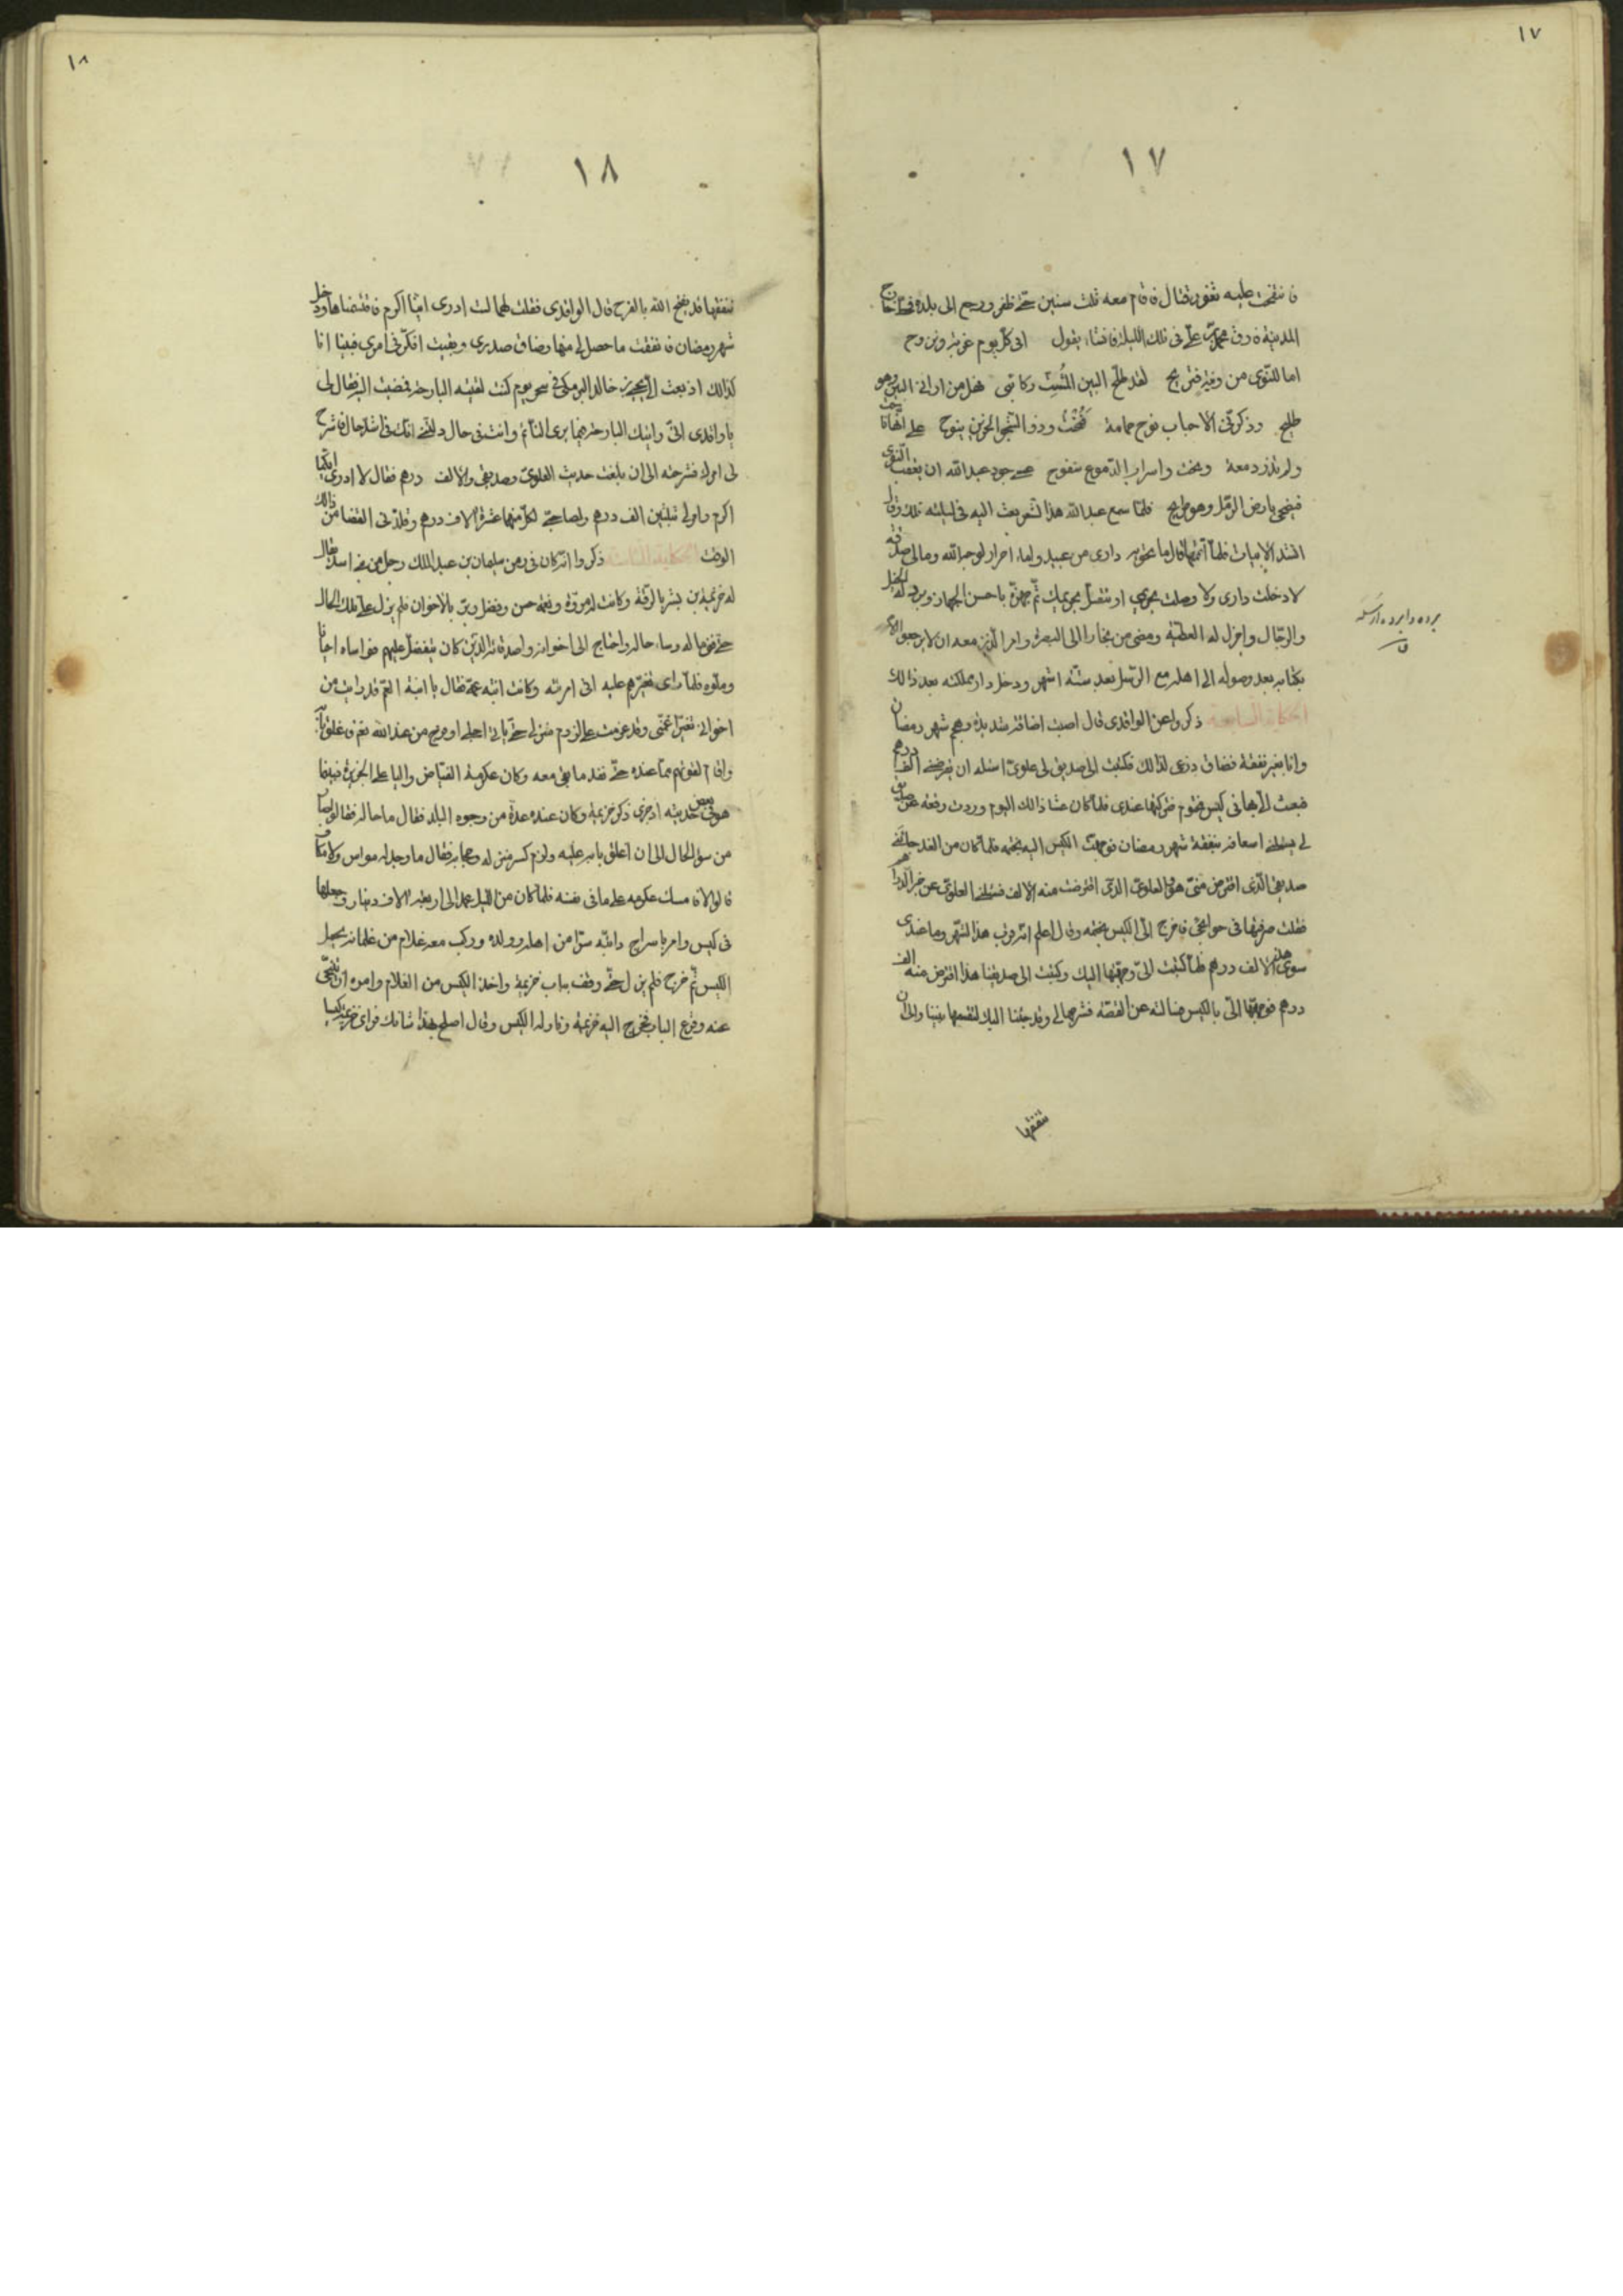 ١٧
١٧
فانفتحت عليه ثغور قتال فاقام معه ثلث سنين حتى ظفر ورجع الى بلده فحتاج
المدينة فارق محمد بن على فى تلك الليلة فانشاء يقول افى كل يوم غربة ونزوح
اما للنوى من ونية فتريح لقد طلح البين المشت ركائبى فهل من ارانى البين وهو
طليح وذكرنى الاحباب نوح حمامة فنحت وذو الشجو الحزين ينوح على انها ناحت
ولم تذر دمعة ونحت واسراب الدموع سفوح عسى جود عبدالله ان يعقب النوى
فيضحى بارض الرمل وهو طريح فلما سمع عبدالله هذا الشعر بعث اليه فى ليلته تلك وقال
انشد الابيات فلما اتمها قال ما يحويه دارى من عبيد واماء احرار لوجه الله ومالى صدقة
لا دخلت دارى ولا وصلت بحرمى او تتصل بحرمك ثم جهزه باحسن الجهاز وبرد له الخيل
والرجال واجزل له العطية ومضى من بخارا الى البصرة وامر الذين معه ان لا يرجعوا الا
بكتابه بعد وصوله الى اهله مع الرسل بعد ستة اشهر ودخل دار مملكته بعد ذالك
الحكاية السابعة ذكروا عن الواقدى قال اصبت اضاقة شديدة وهجم شهر رمضان
وانا بغير نفقة فضاق ذرعى لذالك فكتبت الى صديق لى علوى اسئله ان يقرضنى الف درهم
فبعث الى بها فى كيس مختوم فتركتها عندى فلما كان عشا ذالك اليوم وردت رقعة عن صديق
لى يسئلنى اسعافه بنفقة شهر رمضان فوجهت الكيس اليه بختمه فلما كان من الغد جائنى
صديقى الذى اقترض منى هو والعلوى الذى اقترضت منه الالف فسئلنى العلوى عن خبر الدراهم
فقلت صرفتها فى حوائجى فاخرج الى الكيس بختمه وقال اعلم انه قرب هذا الشهر وما عندى
سوى هذه الالف درهم فلما كتبت الى وجهتها اليك وكتبت الى صديقنا هذا اقترض منه الف
درهم فوجهها الى بالكيس فسالته عن القصة فشرحها لى وقد جئنا اليك لنقسمها بيننا والى ان
ننفقها
برده وابرده ارسله
ق
١٨
١٨
ننفقها قد يفتح الله بالفرج قال الواقدى فقلت لهما لست ادرى اينا اكرم فاقتسمناها ودخل
شهر رمضان فانفقت ما حصل لى منها وضاق صدرى وبقيت افكر فى امرى فبينا انا
كذالك اذ بعث الى يحيى بن خالد البرمكى فى سحر يوم كنت لقيته البارحة فمضيت اليه فقال لى
يا واقدى انى رايتك البارحة فيما يرى النائم وانت فى حال دلتنى انك فى اشد حال فاشرح
لى امرك فشرحته الى ان بلغت حديث العلوى وصديقى والالف درهم فقال لا ادرى ايكما
اكرم وامر لى بثلثين الف درهم ولصاحبى لكل منهما عشرة الاف درهم وقلدنى القضا من ذالك
الوقت الحكاية الثامنة ذكروا انه كان فى زمن سليمان بن عبد الملك رجل من بنى اسد يقال
له خزيمة بن بشر بالرقة وكانت له مروة ونعمة حسن وفضل وبر بالاخوان فلم يزل على تلك الحال
حتى نفق ماله وساء حاله واحتاج الى اخوانه واصدقائه الذين كان يتفضل عليهم فواساه احيانا
وملوه فلما راى تغيرهم عليه اتى امرئته وكانت ابنة عمه فقال يا ابنة العم قد رايت من
اخوانى تغيرا عنى وقد عزمت على لزوم منزلى حتى ياتى اجلى او فرج من عند الله تعم فاغلق بابه
واقام يتقوت مما عنده حتى نفد ما بقى معه وكان عكرمة الفياض واليا على الجزيرة فبينما
هو فى بعض حديثه اذ جرى ذكر خزيمة وكان عنده عدة من وجوه البلد فقال ما حاله فقالوا صار
من سوء الحال الى ان اغلق بابه عليه ولزم كسر منزله وحجابه فقال ما وجد له مواس ولا مكاف
قالوا لا فامسك عكرمه على ما فى نفسه فلما كان من الليل عمد الى اربعة الاف دينار وجعلها
فى كيس وامر باسراج دابته سرا من اهله وولده وركب معه غلام من غلمانه يحمل
الكيس ثم خرج فلم يزل حتى وقف بباب خزيمة واخذ الكيس من الغلام وامره ان يتنحى
عنه وقرع الباب فخرج اليه خزيمة وناوله الكيس وقال اصلح بهذا شانك فراى خزيمة كيسا